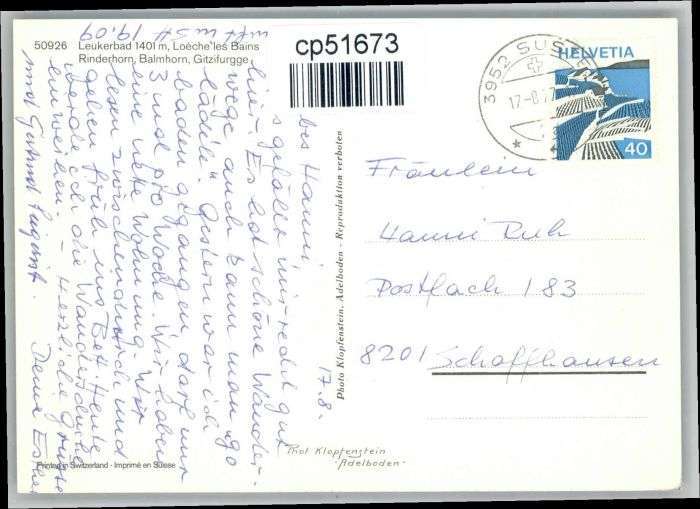 50926 Leukerbad 1401 m, Loèche les Bains
Rinderhorn, Balmhorn, Gitzifurgge
cp51673
3952 SUSTEN
17-8-77
HELVETIA
40
17.8.
bes Hanni
s gefällt mir recht gut
hier. Es hat schöne Wander-
wege auch kann man go
bädele". Gestern war ich
baden gegangen, darf nur
3 mal pro Woche. Wir haben
eine nette Wohnung. Wir
lesen zwischendurch und
gehen früh ins Bett. Heute
werde ich die Wanderschuhe
einweihen. - Herzliche Grüsse
Deine Esther
und Gotthold August.
19.09
Fräulein
Hanni Ruh
Postfach 183
8201 Schaffhausen
Photo Klopfenstein, Adelboden - Reproduktion verboten
Phot Klopfenstein
"Adelboden"
Printed in Switzerland - Imprimé en Suisse